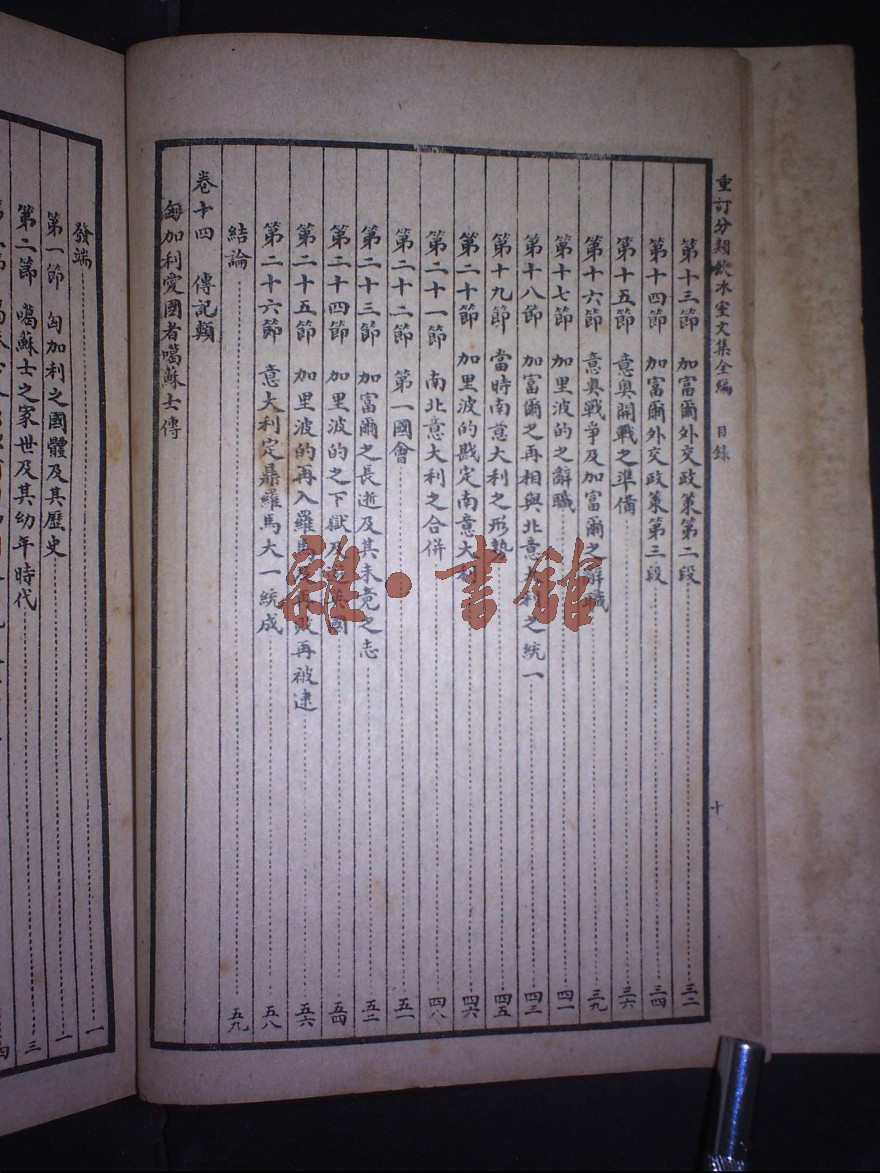 重訂分類飲冰室文集全編 目錄 十
第十三節 加富爾外交政策第二段 三二
第十四節 加富爾外交政策第三段 三四
第十五節 意奥開戰之準備 三六
第十六節 意奥戰爭及加富爾之辭職 三九
第十七節 加里波的之辭職 四一
第十八節 加富爾之再相與北意大利之統一 四三
第十九節 當時南意大利之形勢 四五
第二十節 加里波的戡定南意大利 四六
第二十一節 南北意大利之合併 四八
第二十二節 第一國會 五一
第二十三節 加富爾之長逝及其未竟之志 五二
第二十四節 加里波的之下獄及游英國 五四
第二十五節 加里波的再入羅馬及再敗再被逮 五六
第二十六節 意大利定鼎羅馬大一統成 五八
結論 五九
卷十四 傳記類
匈加利愛國者噶蘇士傳
發端 一
第一節 匈加利之國體及其歷史 一
第二節 噶蘇士之家世及其幼年時代 三
四
雜·書館